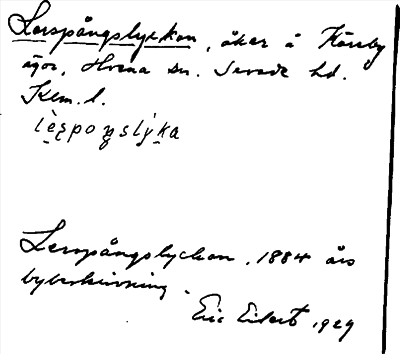 Lerspångslyckan, åker å Köreby
ägor, Hvena sn. Sevede hd.
Klm. l.
lèspoŋslýka
Lerspångslyckan, 1884 års
bybeskrivning.
Eric Eilert 1929